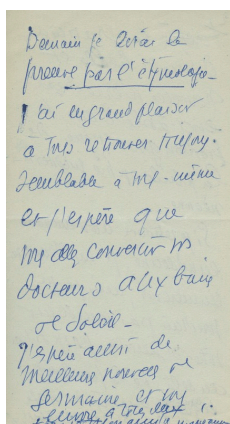 Demain je lirai la
preuve par l'étymologie.
J'ai eu grand plaisir
à vous retrouver toujours
semblable à vous-même
et j'espère que
vous allez convertir vos
docteurs aux bains
de soleil -
J'espère aussi de
meilleures nouvelles de
Germaine, et vous